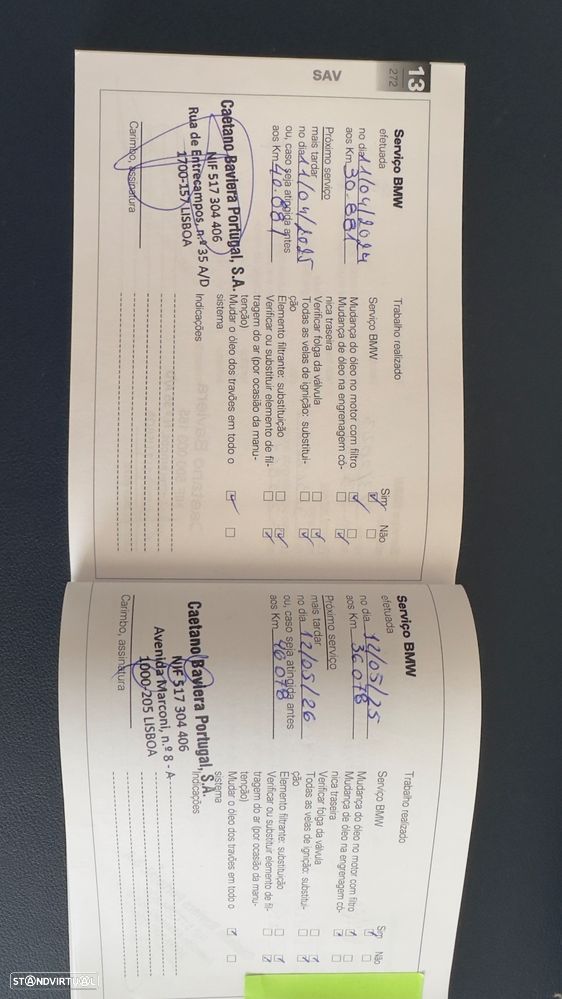 13
272
SAV
Serviço BMW
efetuada
no dia 11/04/2024
aos Km 30.881
Próximo serviço
mais tardar
no dia 11/04/2025
ou, caso seja atingida antes
aos Km 40.881
Caetano Baviera Portugal, S.A.
NIF 517 304 406
Rua de Entrecampos, n.º 35 A/D
1700-157 LISBOA
Carimbo, assinatura
Trabalho realizado
Sim Não
Serviço BMW
Mudança do óleo no motor com filtro
Mudança de óleo na engrenagem có-
nica traseira
Verificar folga da válvula
Todas as velas de ignição: substitui-
ção
Elemento filtrante: substituição
Verificar ou substituir elemento de fil-
tragem do ar (por ocasião da manu-
tenção)
Mudar o óleo dos travões em todo o
sistema
Indicações
Serviço BMW
efetuada
no dia 12/05/25
aos Km 36078
Próximo serviço
mais tardar
no dia 12/05/26
ou, caso seja atingida antes
aos Km 46078
Caetano Baviera Portugal, S.A.
NIF 517 304 406
Avenida Marconi, n.º 8 - A
1000/205 LISBOA
Carimbo, assinatura
Trabalho realizado
Sim Não
Serviço BMW
Mudança do óleo no motor com filtro
Mudança de óleo na engrenagem có-
nica traseira
Verificar folga da válvula
Todas as velas de ignição: substitui-
ção
Elemento filtrante: substituição
Verificar ou substituir elemento de fil-
tragem do ar (por ocasião da manu-
tenção)
Mudar o óleo dos travões em todo o
sistema
Indicações
STANDVIRTUAL